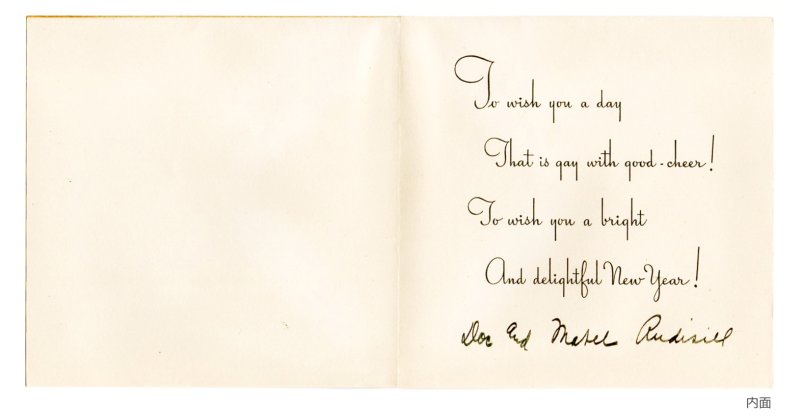 To wish you a day
That is gay with good-cheer!
To wish you a bright
And delightful New Year!
Doc and Mabel Rudisill
内面